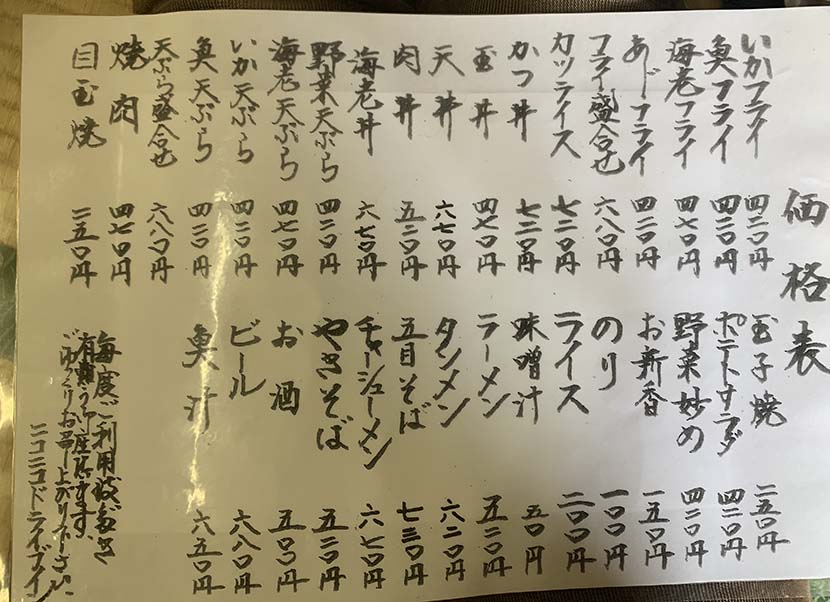 価格表
いかフライ 四二〇円
魚フライ 四二〇円
海老フライ 四七〇円
あじフライ 四二〇円
フライ盛合せ 六八〇円
カツライス 七二〇円
かつ丼 七二〇円
玉丼 四七〇円
天丼 六七〇円
肉丼 五二〇円
海老丼 六七〇円
野菜天ぷら 四二〇円
海老天ぷら 四七〇円
いか天ぷら 四二〇円
魚天ぷら 四二〇円
天ぷら盛合せ 六八〇円
焼肉 四七〇円
目玉焼 二五〇円
玉子焼 二五〇円
ポテトサラダ 四二〇円
野菜妙め 四二〇円
お新香 一五〇円
のり 一〇〇円
ライス 二〇〇円
味噌汁 五〇円
ラーメン 五二〇円
タンメン 六二〇円
五目そば 七三〇円
チャーシューメン 六七〇円
やきそば 五二〇円
お酒 五〇〇円
ビール 六八〇円
魚汁 六五〇円
毎度ご利用
有難う御座居ます。
ごゆっくりお召し上がり下さい、
ニコニコドライブイン